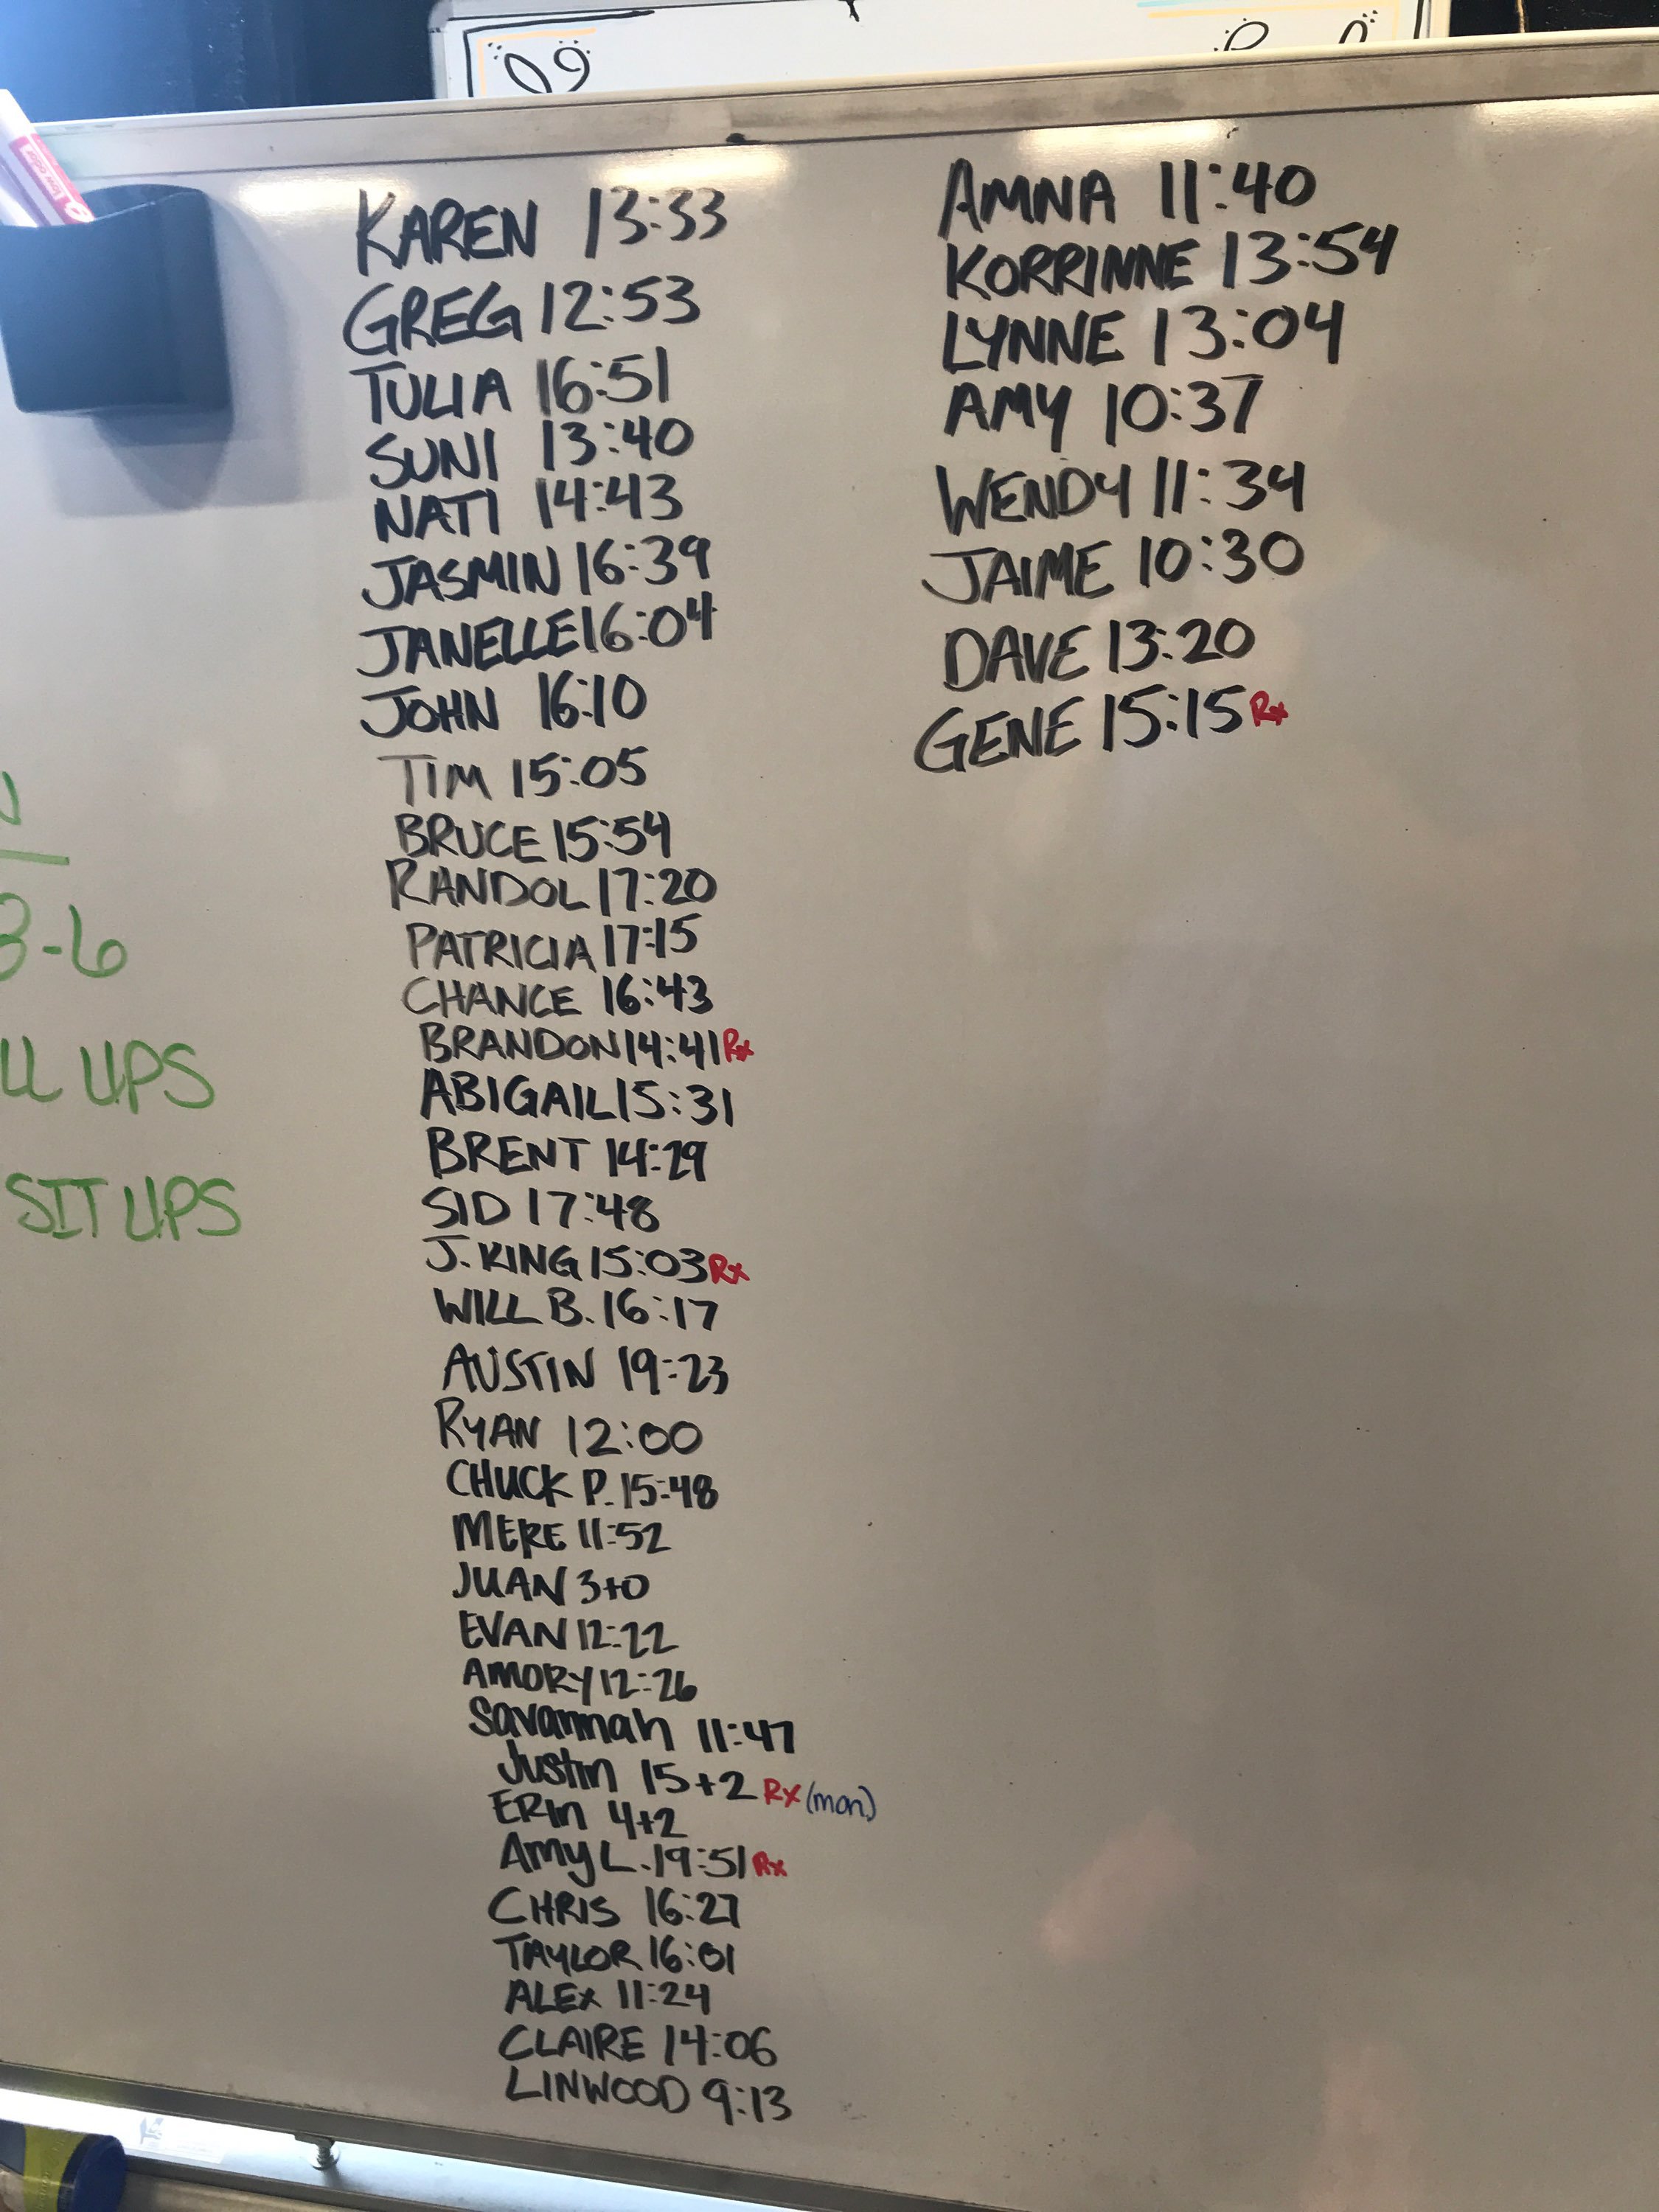 KAREN 13:33
GREG 12:53
TULIA 16:51
SUNI 13:40
NATI 14:43
JASMIN 16:39
JANELLE 16:04
JOHN 16:10
TIM 15:05
BRUCE 15:54
RANDOL 17:20
PATRICIA 17:15
CHANCE 16:43
BRANDON 14:41 Rx
ABIGAIL 15:31
BRENT 14:29
SID 17:48
J. KING 15:03 Rx
WILL B. 16:17
AUSTIN 19:23
RYAN 12:00
CHUCK P. 15:48
MERE 11:52
JUAN 3+0
EVAN 12:22
AMORY 12:26
Savannah 11:47
Justin 15+2 Rx (mon)
ERIn 4+2
Amy L. 19:51 Rx
CHRIS 16:27
TAYLOR 16:01
ALEx 11:24
CLAIRE 14:06
LINWOOD 9:13
AMNA 11:40
KORRINNE 13:54
LYNNE 13:04
AMY 10:37
WENDY 11:34
JAIME 10:30
DAVE 13:20
GENE 15:15 Rx
3-6
UPS
SIT UPS